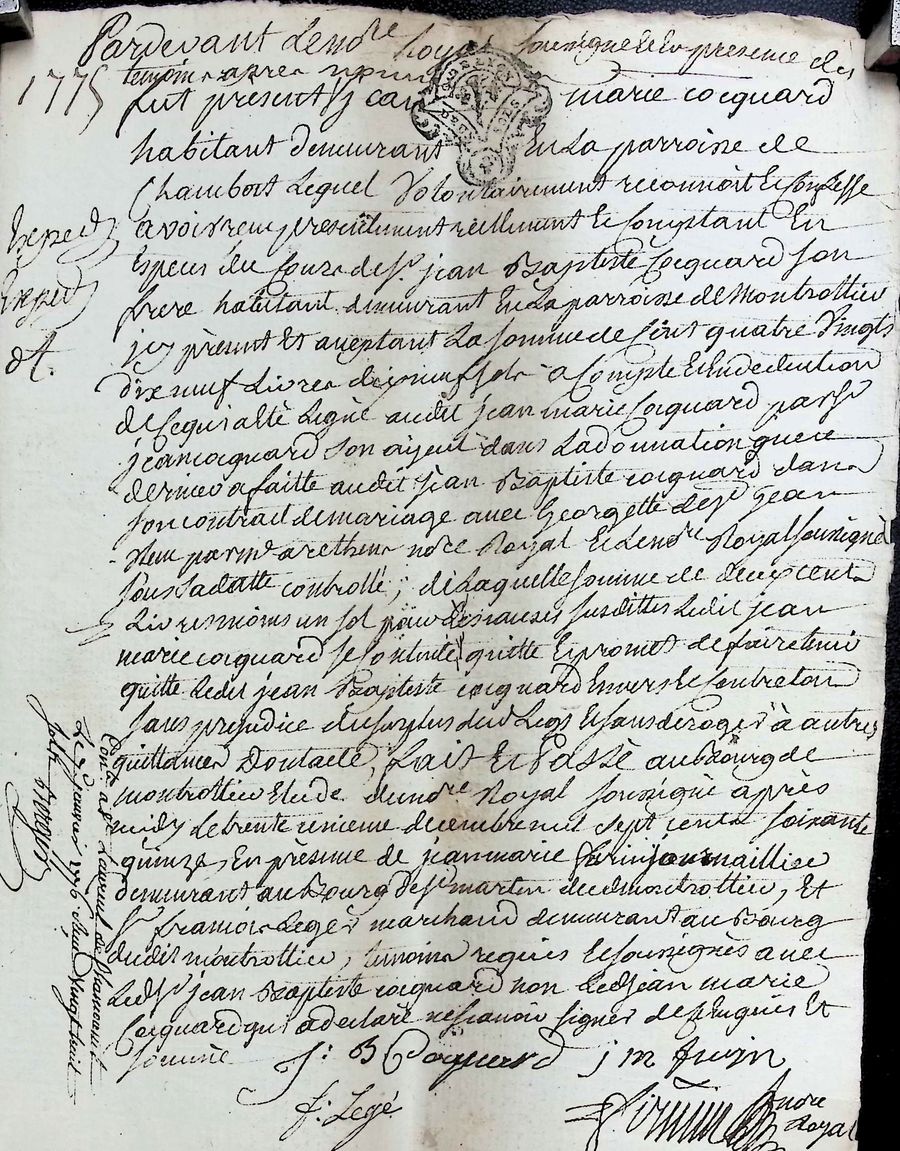 Pardevant le no.re Royal soussigné et en presence des
1775
temoins apres
fut present marie cocquard
habitant demeurant en la parroisse de
Chambost lequel volontairement reconnoit et confesse
avoir recu presentement reellement et comptant en
especes du cours de Sr jean Baptiste Cocquard son
frere habitant demeurant en la parroisse de Montrottier
icy présent et aceptant la somme de cent quatre vingts
dix neuf Livres dixneuf sols a compte et en deduction
de ce qui a été legué audit jean marie Cocquard par Sr
jean cocquard son ayeul dans la donnation que ce
dernier a faitte audit jean Baptiste cocquard dans
son contrat de mariage avec Georgette Legr jean
par me no.re Royal et le no.re Royal soussigné
sous sa datte controllé; de laquelle somme de deux cents
Livres moins un sol pour les causes susdittes ledit jean
marie cocquard se contente, quitte et promet de faire tenir
quitte ledit jean Baptiste cocquard envers et contre tous
sans prejudice du surplus dud Legs et sans deroger à autres
quittances Dont acte, fait et Passé au Bourg de
montrottier etude dud no.re Royal soussigné après
midy le trente unieme decembre mil sept cents soixante
quinze, En présence de jean marie journaillier
demeurant au Bourg de St martin dud montrottier, Et
Sr francois Legér marchand demeurant au Bourg
dudit montrottier, temoins requis et soussignés avec
Led Sr jean Baptiste cocquard non Led jean marie
Cocquard qui a declaré ne scavoir signer de ce enquis et
sommé
J: B Coquard j m
f: Legé
no.re
Royal
Exped
Exped
dt.
Cont. a St Laurent de Chamousset
Le janvier 1776 Reçu vingt huit
sols